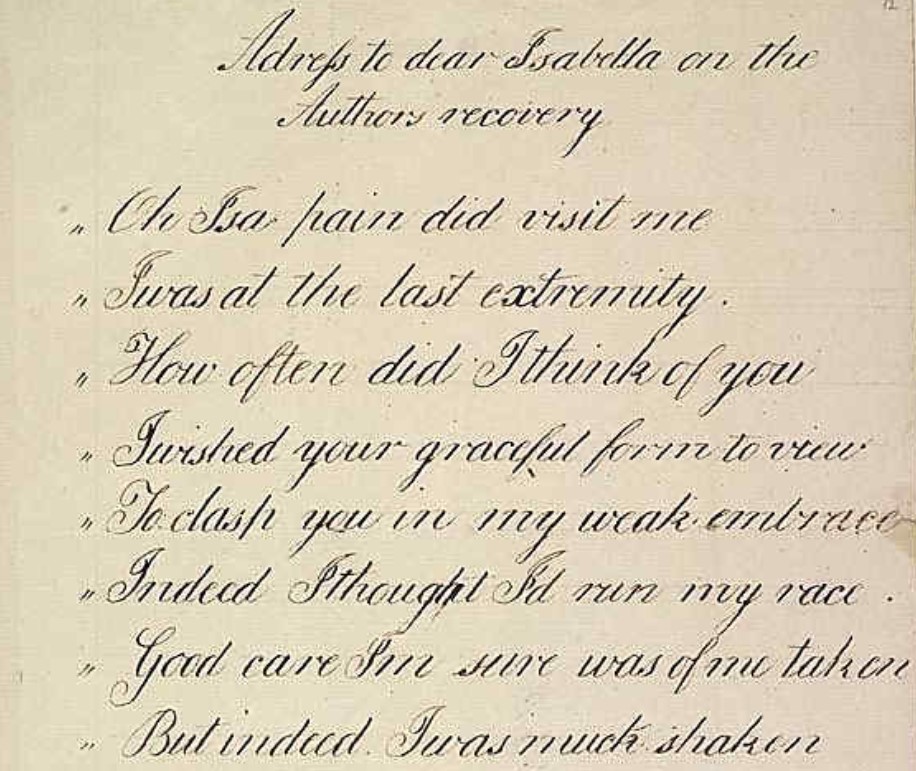 12
Adress to dear Isabella on the
Authors recovery
" Oh Isa pain did visit me
" I was at the last extremity.
" How often did I think of you
" I wished your graceful form to view
" To clasp you in my weak embrace
" Indeed I thought I'd run my race.
" Good care I'm sure was of me taken
" But indeed I was much shaken